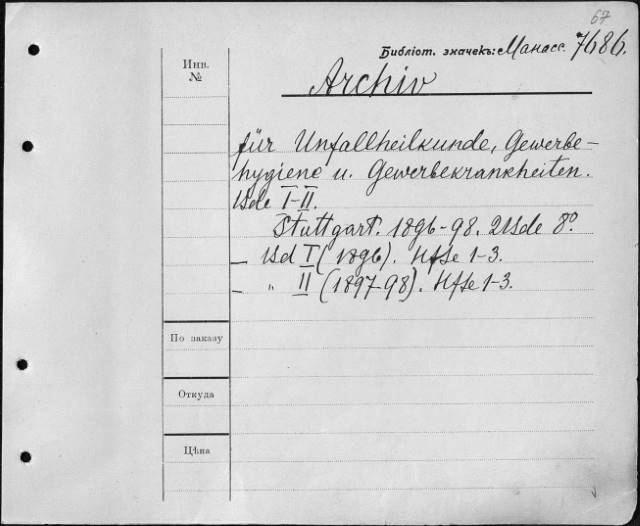 67
Библіот. значекъ: Манасс. 7686.
Инв. №
Archiv
für Unfallheilkunde, Gewerbe-
hygiene u. Gewerbekrankheiten.
Bde I-II.
Stuttgart. 1896-98. 2 Bde 8°
— Bd I (1896). Hfte 1-3.
— " II (1897-98). Hfte 1-3.
По заказу
Откуда
Цѣна